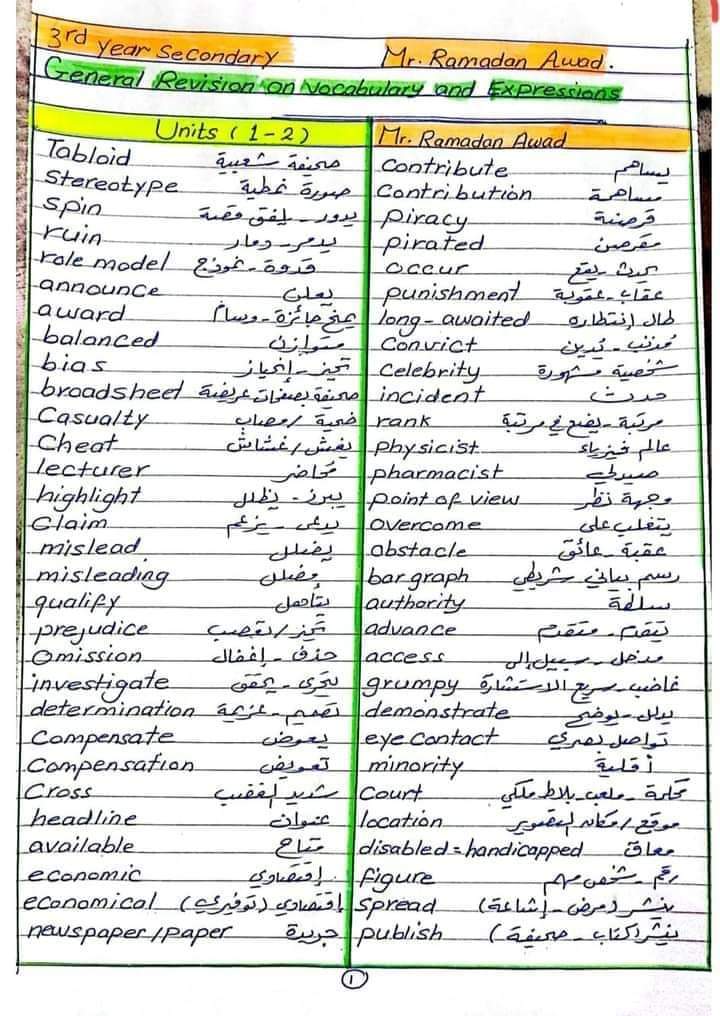 3rd year Secondary Mr. Ramadan Awad.
General Revision on Vocabulary and Expressions
Units (1-2)
Tabloid صحيفة شعبية
Stereotype صورة نمطية
Spin يدور - يلفق قصة
ruin يدمر - دمار
role model قدوة - نموذج
announce يعلن
award يمنح جائزة - وسام
balanced متوازن
bias تحيز - إنحياز
broadsheet صحيفة بصفحات عريضة
Casualty ضحية / مصاب
Cheat يغش / غشاش
lecturer مُحاضر
highlight يبرز - يظلل
Claim يدعى - يزعم
mislead يضلل
misleading مضلل
qualify يتأهل
prejudice تحيز / تعصب
Omission حذف - إغفال
investigate يتحرى - يحقق
determination تصميم - عزيمة
Compensate يعوض
Compensation تعويض
Cross شديد الغضب
headline عنوان
available متاح
economic إقتصادي
economical إقتصادي (توفيري)
newspaper/paper جريدة
Mr. Ramadan Awad
Contribute يساهم
Contribution مساهمة
Piracy قرصنة
pirated مقرصن
occur يحدث - يقع
punishment عقاب - عقوبة
long-awaited طال إنتظاره
Convict مُذنب - يُدين
Celebrity شخصية مشهورة
incident حدث
rank مرتبة - يضع في مرتبة
physicist عالم فيزياء
pharmacist صيدلي
point of view وجهة نظر
overcome يتغلب على
obstacle عقبة - عائق
bar graph رسم بياني شريطي
authority سلطة
advance يتقدم - متقدم
access مدخل - سبيل إلى
grumpy غاضب - سريع الاستثارة
demonstrate يدلل - يوضح
eye contact تواصل بصري
minority أقلية
Court محكمة - ملعب - بلاط ملكي
location موقع / مكان التصوير
disabled = handicapped معاق
figure رقم - شخص مهم
Spread ينشر (مرض - إشاعة)
publish ينشر (كتاب - صحيفة)
1